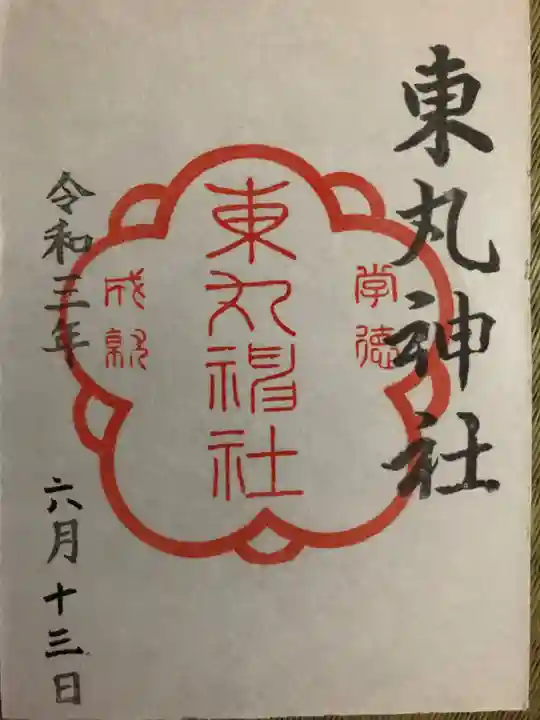 東丸神社
学徳
東丸神社
成就
令和三年
六月十三日